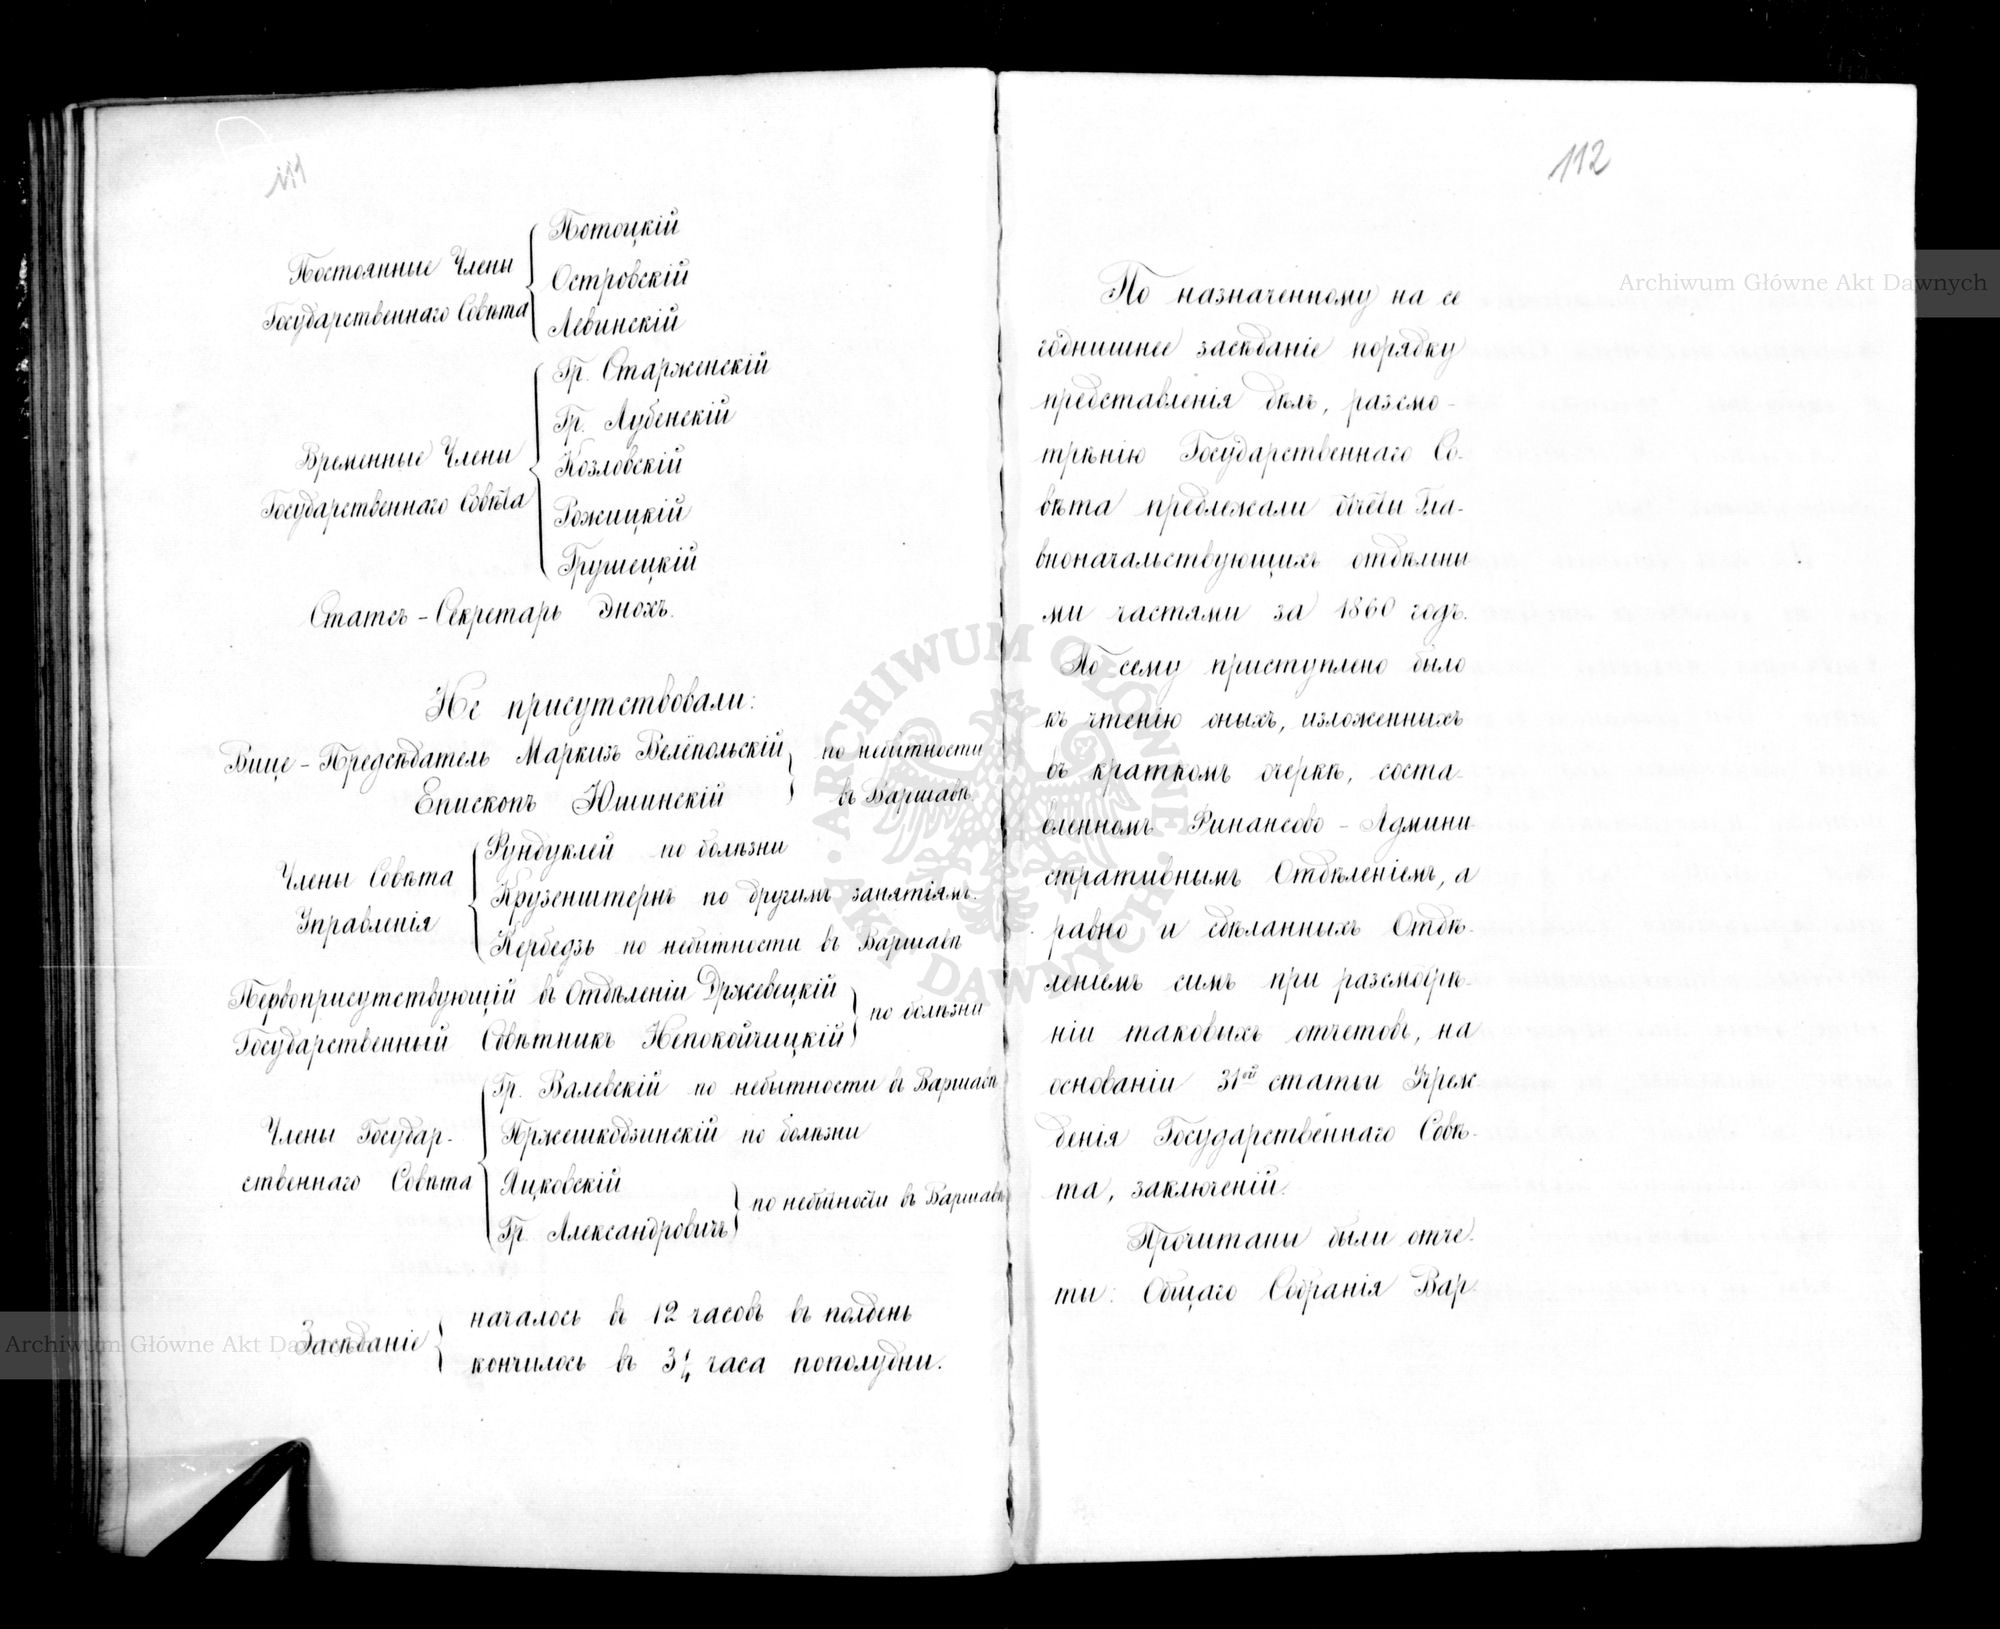 111
Потоцкій
Постоянные Члены
Островскій
Государственнаго Совѣта
Левинскій
Гр. Старженскій
Гр. Лубенскій
Временные Члены
Козловскій
Государственнаго Совѣта
Рожицкій
Грушецкій
Статсъ-Секретарь Энохъ.
Не присутствовали:
Вице-Предсѣдатель Маркизъ Велёпольскій по небытности
Епископъ Юшинскій въ Варшавѣ.
Фундуклей по болѣзни
Члены Совѣта
Крузенштернъ по другимъ занятіямъ.
Управленія
Кербедзъ по небытности въ Варшавѣ
Первоприсутствующій въ Отдѣленіи Држевецкій
по болѣзни
Государственный Совѣтникъ Непокойчицкій
Гр. Валевскій по небытности въ Варшавѣ
Члены Государ-
Пржешкодзинскій по болѣзни
ственнаго Совѣта
Яцковскій
по небытности въ Варшавѣ
Гр. Александровичъ
началось въ 12 часовъ въ полдень
Засѣданіе
кончилось въ 3 1/4 часа пополудни.
112
По назначенному на се
годнишнее засѣданіе порядку
представленія дѣлъ, разсмо-
трѣнію Государственнаго Со-
вѣта предлежали отчеты Гла-
вноначальствующихъ отдѣльны
ми частями за 1860 годъ.
По сему приступлено было
къ чтенію оныхъ, изложенныхъ
въ краткомъ очеркѣ, соста-
вленномъ Финансово-Админи
стративнымъ Отдѣленіемъ, а
равно и сдѣланныхъ Отдѣ-
леніемъ симъ при разсмотрѣ-
ніи таковыхъ отчетовъ, на
основаніи 31ой статьи Учреж
денія Государственнаго Совѣ-
та, заключеній.
Прочитаны были отче-
ты: Общаго Собранія Вар-
Archiwum Główne Akt Dawnych
Archiwum Główne Akt Dawnych
ARCHIWUM GŁÓWNE AKT DAWNYCH